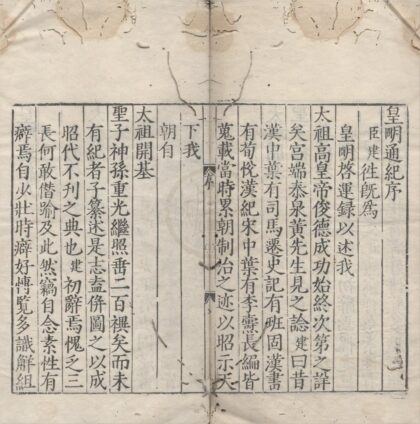 皇明通紀序
臣建徃既為
皇明啓運録以述我
太祖高皇帝俊德成功始終次第之詳
矣宫端泰泉黄先生見之諗建曰昔
漢中葉有司馬遷史記有班固漢書
有荀悅漢紀宋中葉有李燾長編皆
蒐載當時累朝制治之迹以昭示天
序
下我
朝自
太祖開基
聖子神孫重光繼照垂二百禩矣而未
有紀者子纂述是志盍併圖之以成
昭代不刊之典也建初辭焉愧乏三
長何敢僣踰及此然竊自念素性有
癖焉自少壯時癖好博覧多識解組